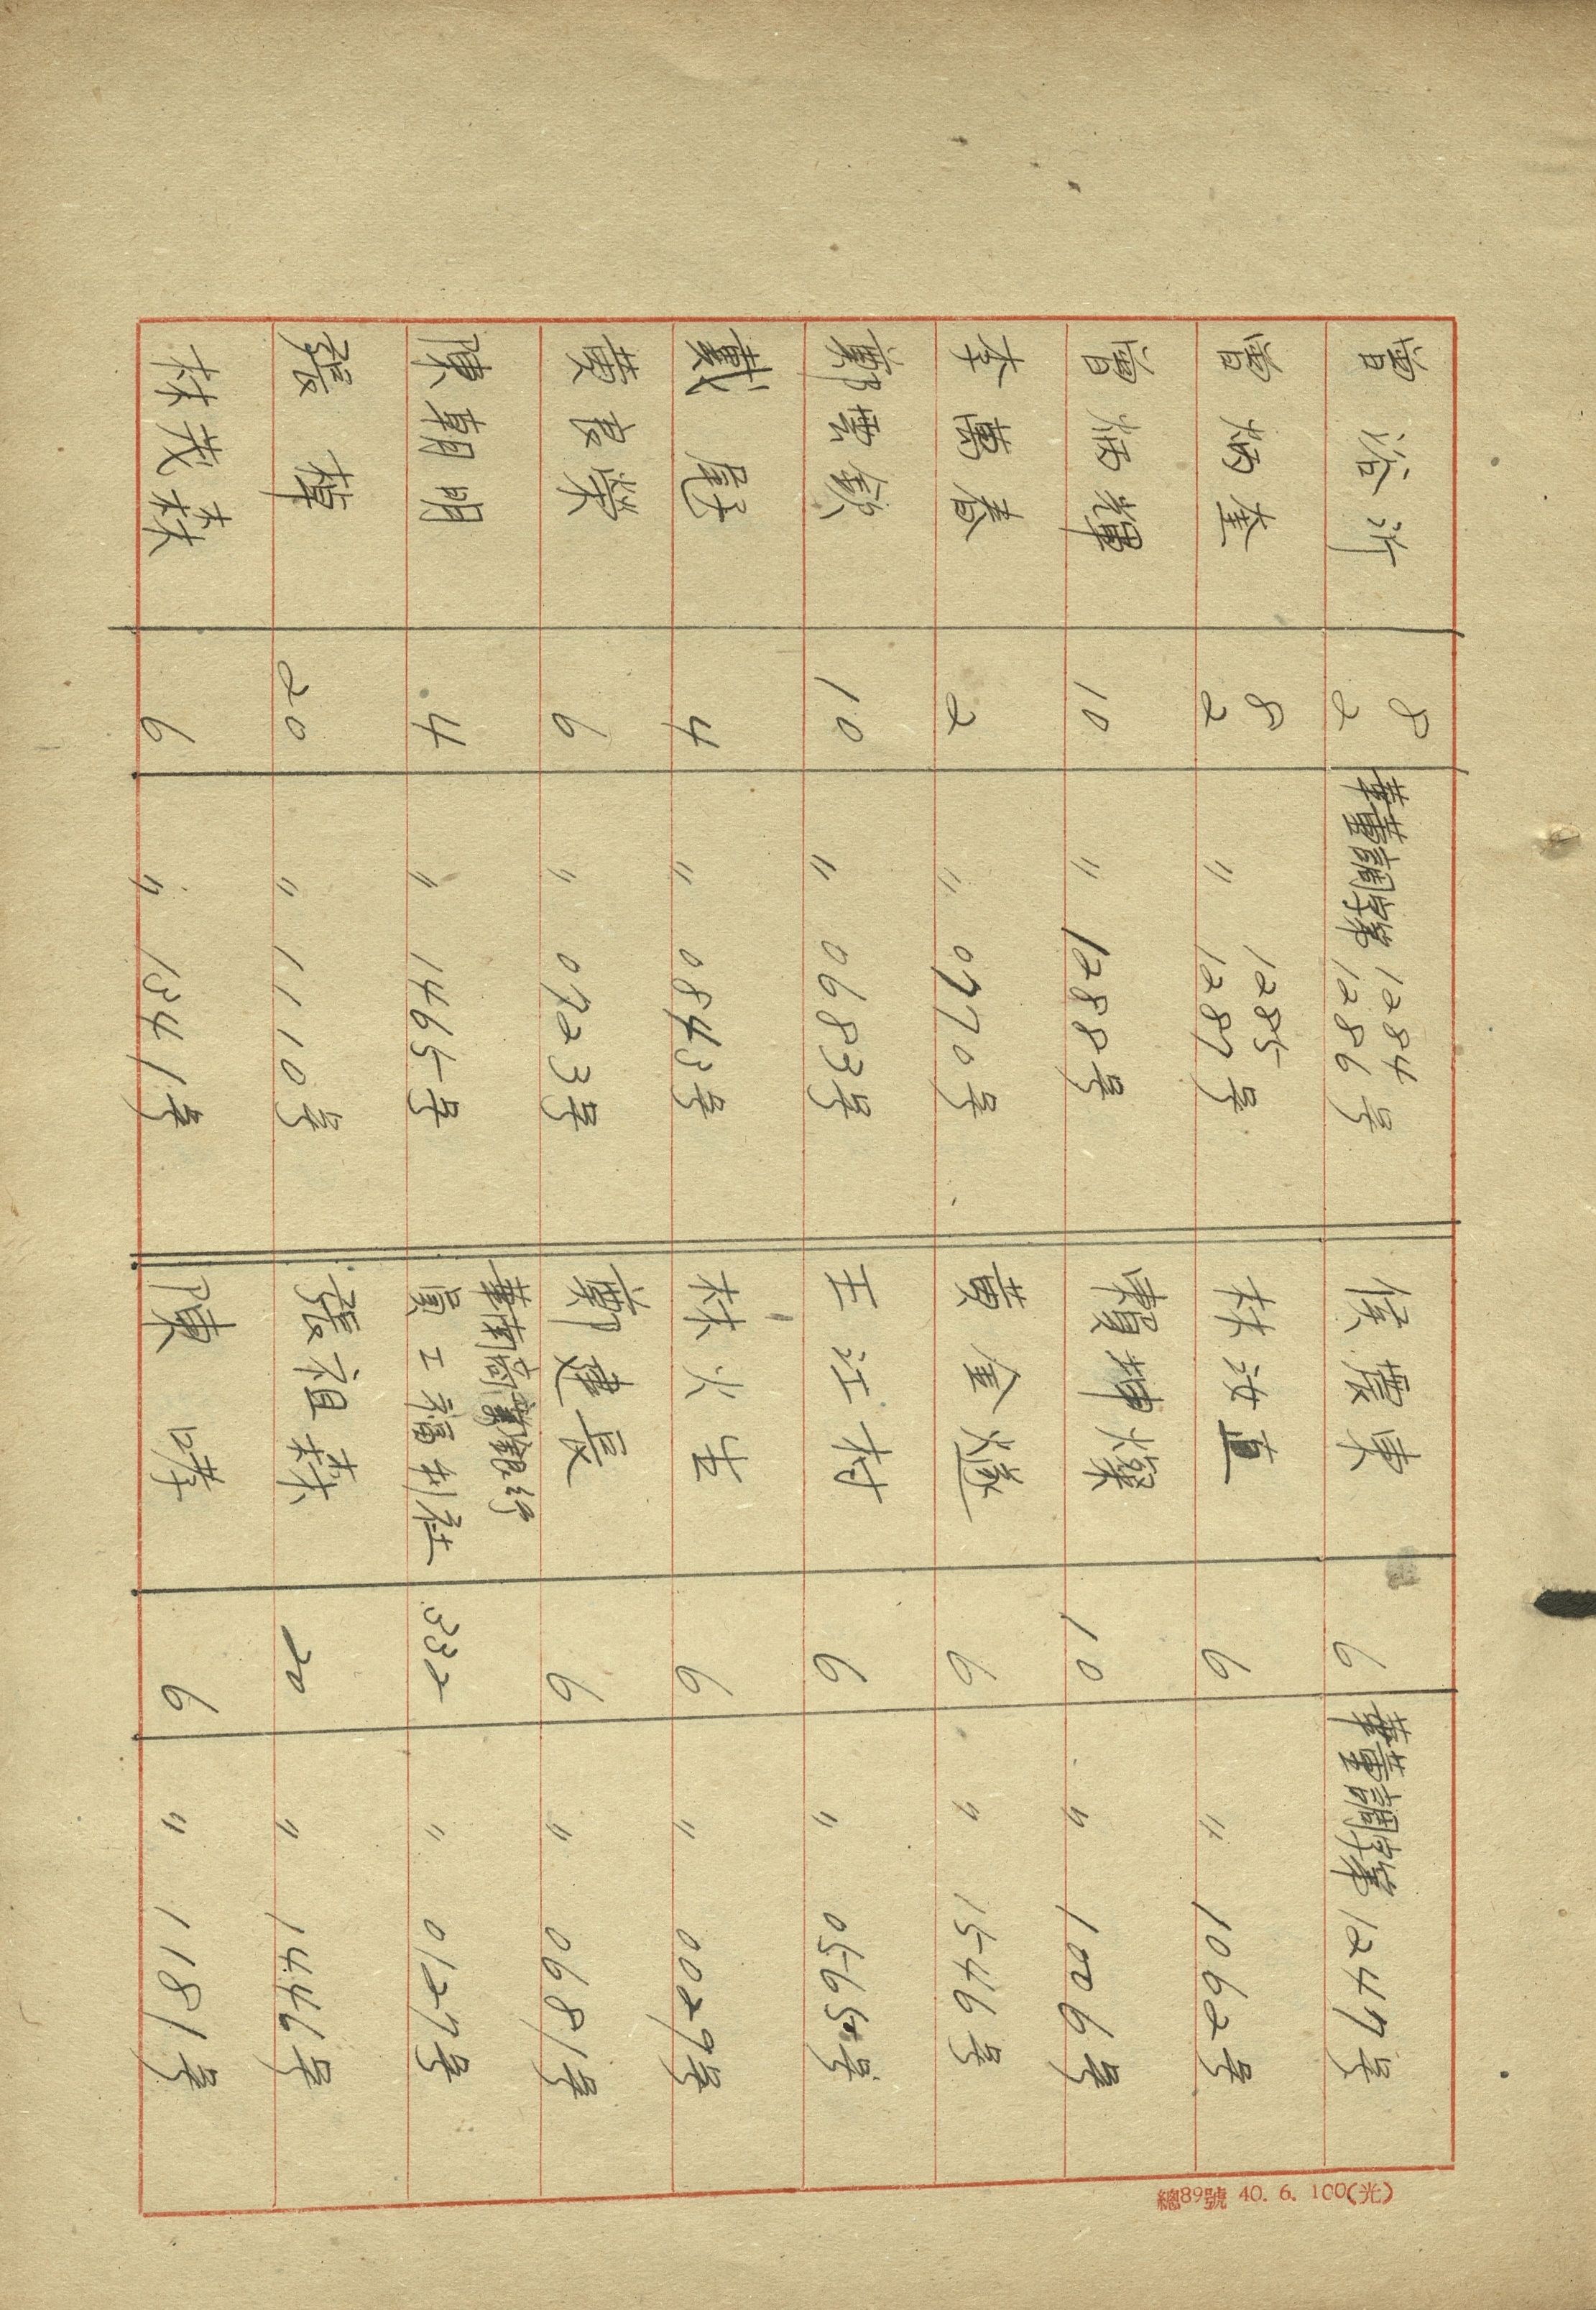 潘治許 8 2 華書調字第 1284 1286号 侯慶東 6 華書調字第 1247号
潘炳奎 8 2 〃 1285 1287号 林汝直 6 〃 1062号
潘炳輝 10 〃 1288号 賴坤燦 10 〃 1006号
李萬春 2 〃 0770号 黃金燧 6 〃 1546号
鄭雲欽 10 〃 0683号 王江村 6 〃 0565号
戴尾 4 〃 0843号 林火生 6 〃 0029号
黃良榮 6 〃 0723号 鄭建長 6 〃 0681号
陳朝明 4 〃 1465号 華南商業銀行
員工福利社 332 〃 0127号
張樟 20 〃 1110号 張祖 20 〃 1446号
林茂森 6 〃 1341号 陳 6 〃 1181号
總89號 40.6.100(光)